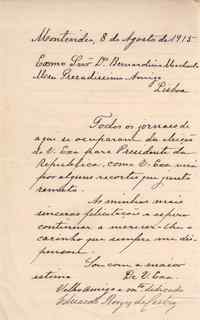 Montevideo, 8 de Agosto de 1915
Exmo Snr. Dr. Bernardino Machado
Meu Presadissimo Amigo
Lisboa
Todos os jornaes de
aqui se occuparam da eleição
de V. Exa para Presidente da
Republica, como V. Exa verá
por alguns recortes que junto
remeto.
As minhas mais
sinceras felicitações e espero
continuar a merecer-lhe o
carinho que sempre me dis-
pensou.
Sou com a maior
estima De V. Exa
Velho amigo e mto dedicado
Eduardo